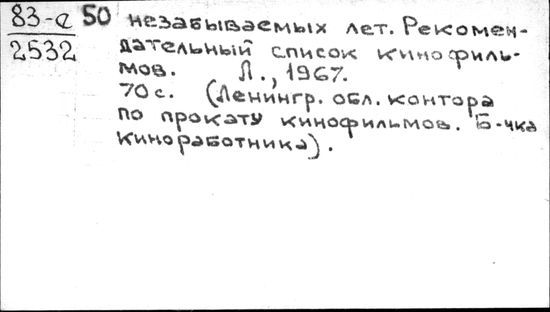 83-е 50 незабываемых лет. Рекомен-
2532 дательный список кинофиль-
мов. Л., 1967.
70 с. (Ленингр. обл. контора
по прокату кинофильмов. Б-чка
киноработника).